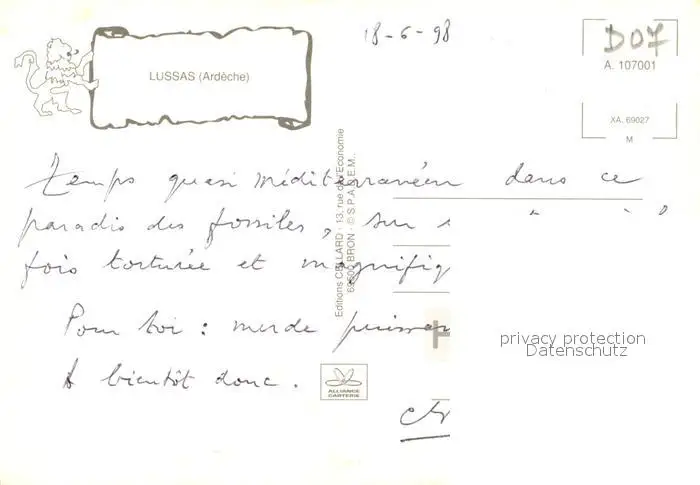 18-6-98
D07
LUSSAS (Ardèche)
A. 107001
XA. 69027
M
Temps quasi méditerranéen dans ce
paradis des fossiles, sur
fois torturée et magnifiq
Pour toi : merde puissan
A bientôt donc.
Editions CELLARD - 13, rue de l'Economie
69500 BRON - © S.P.A.D.E.M.
ALLIANCE
CARTERIE
privacy protection
Datenschutz